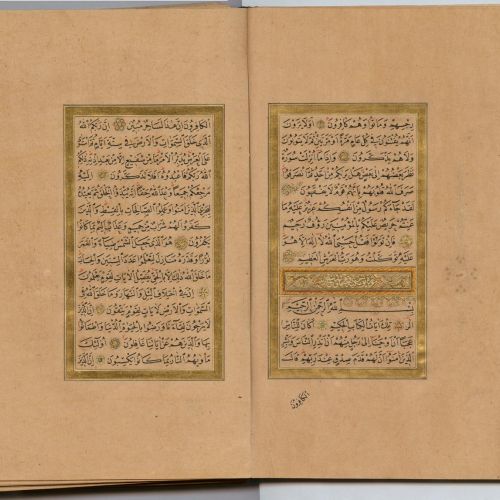 رجسهم وماتوا وهم كافرون اولا يرون
انهم يفتنون في كل عام مرة او مرتين ثم لا يتوبون
ولا هم يذكرون واذا ما انزلت سورة
نظر بعضهم الى بعض هل يريكم من احد ثم انصرفوا
صرف الله قلوبهم بانهم قوم لا يفقهون
لقد جاءكم رسول من انفسكم عزيز عليه ما
عنتم حريص عليكم بالمؤمنين رؤف رحيم
فان تولوا فقل حسبي الله لا اله الا هو
عليه توكلت وهو رب العرش العظيم
بسم الله الرحمن الرحيم
الر تلك ايات الكتاب الحكيم اكان للناس
عجبا ان اوحينا الى رجل منهم ان انذر الناس وبشر
الذين امنوا ان لهم قدم صدق عند ربهم قال
الكافرون
الكافرون ان هذا لساحر مبين ان ربكم الله
الذي خلق السموات والارض في ستة ايام ثم استوى
على العرش يدبر الامر ما من شفيع الا من بعد اذنه ذلكم
الله ربكم فاعبدوه افلا تذكرون اليه
مرجعكم جميعا وعد الله حقا انه يبدؤا الخلق ثم يعيده
ليجزي الذين امنوا وعملوا الصالحات بالقسط والذين
كفروا لهم شراب من حميم وعذاب اليم بما كانوا
يكفرون هو الذي جعل الشمس ضياء والقمر
نورا وقدره منازل لتعلموا عدد السنين والحساب
ما خلق الله ذلك الا بالحق يفصل الايات لقوم يعلمون
ان في اختلاف الليل والنهار وما خلق الله في
السموات والارض لايات لقوم يتقون ان الذين
لا يرجون لقاءنا ورضوا بالحيوة الدنيا واطمأنوا
بها والذين هم عن اياتنا غافلون اولئك
مأويهم النار بما كانوا يكسبون ان الذين